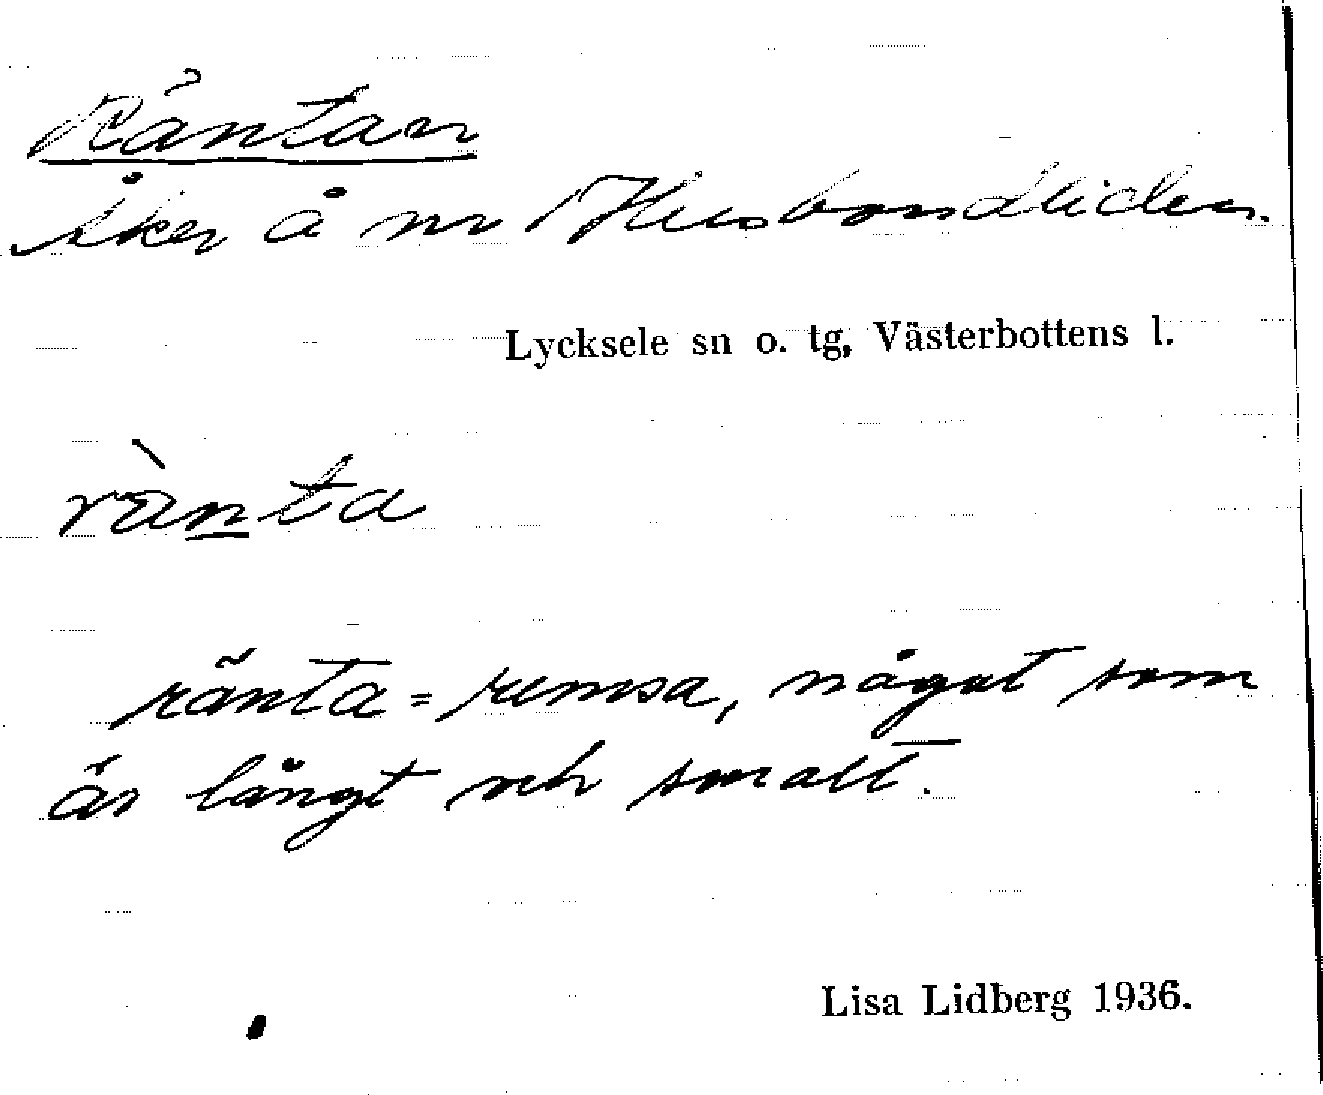 Räntan
åker å nr 1 Husbondliden.
Lycksele sn o. tg, Västerbottens l.
rànta
ränta = remsa, något som
är långt och smalt.
Lisa Lidberg 1936.